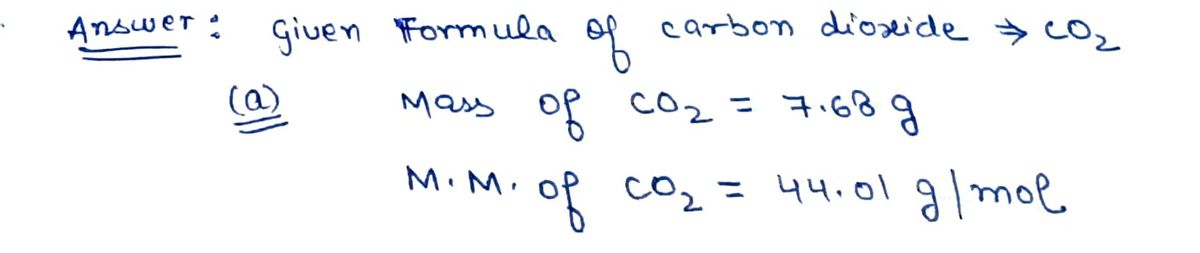 Answer : Given Formula of carbon dioxide ⇒ CO₂
(a) Mass of CO₂ = 7.68 g
M.M. of CO₂ = 44.01 g/mol